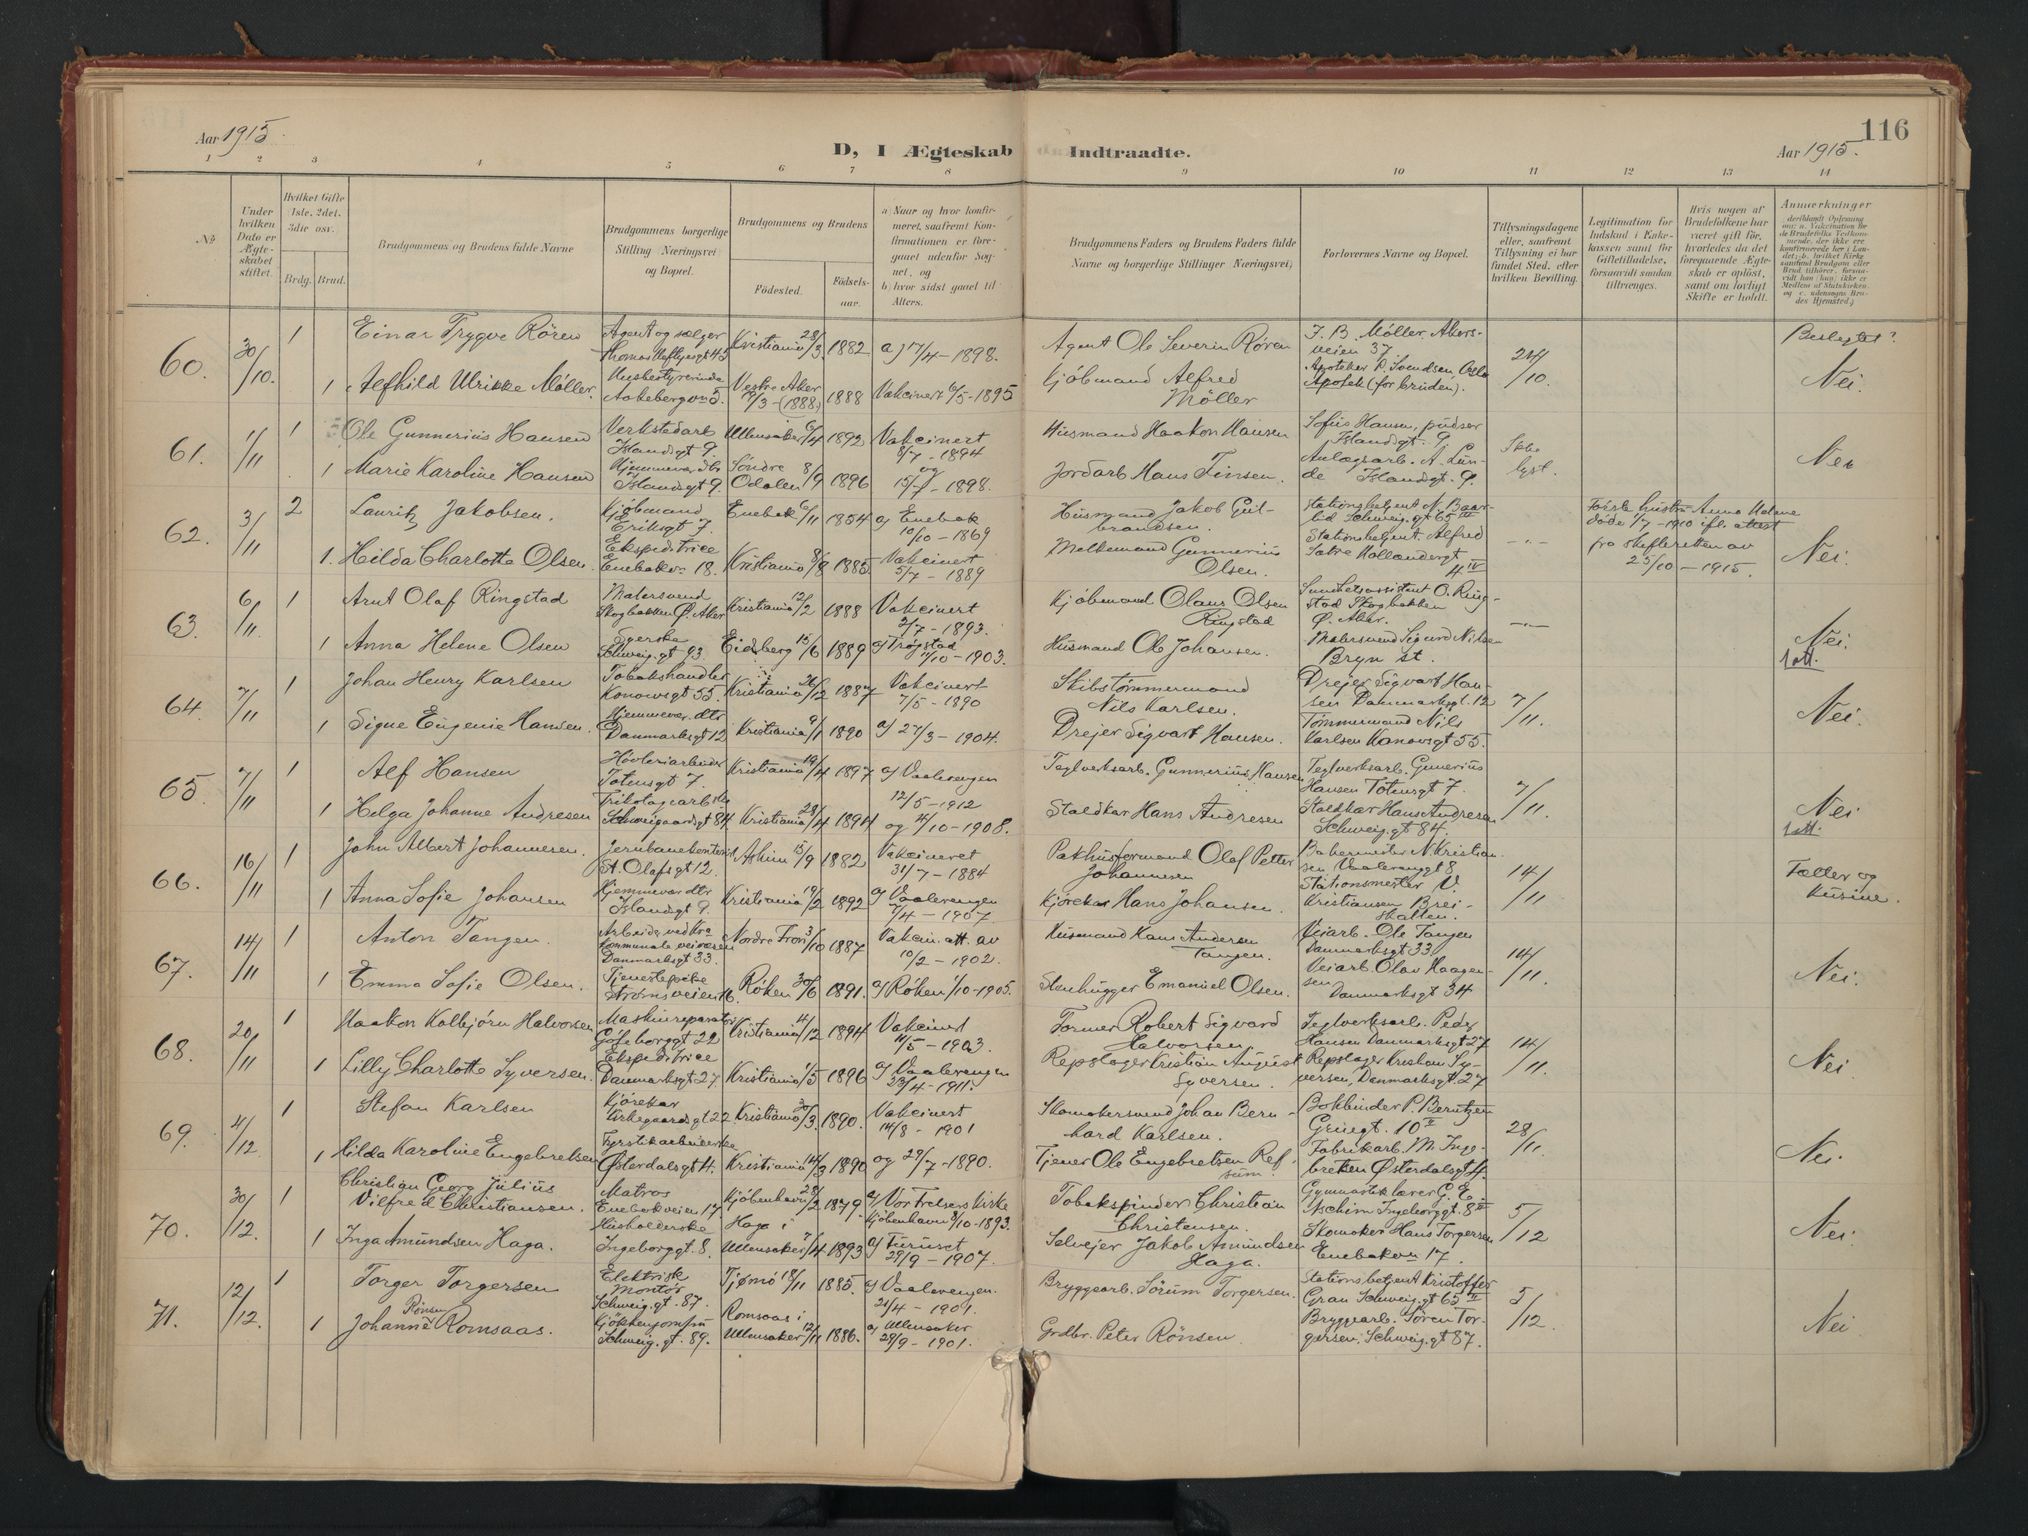 116
Aar 1915.
D, I Ægteskab Indtraadte.
Aar 1915.
1 2 3 4 5 6 7 8 9 10 11 12 13 14
No
Under hvilken Dato er Ægteskabet stiftet.
Hvilket Gifte 1ste, 2det, 3die osv.
Brdg. Brud.
Brudgommens og Brudens fulde Navne
Brudgommens borgerlige Stilling Næringsvei og Bopæl.
Brudgommens og Brudens
Fødested.
Fødselsaar.
a Naar og hvor konfirmeret, saafremt Konfirmationen er foregaaet udenfor Sognet, og
b hvor sidst gaaet til Alters.
Brudgommens Faders og Brudens Faders fulde Navne og borgerlige Stillinger Næringsvei)
Forlovernes Navne og Bopæl.
Tillysningsdagene eller, saafremt Tillysning ei har fundet Sted, efter hvilken Bevilling.
Legitimation for Indskud i Enkekassen samt for Giftetilladelse, forsaavidt saadan tiltrænges.
Hvis nogen af Brudefolkene har været gift før, hvorledes da det foregaaende Ægteskab er opløst, samt om lovligt Skifte er holdt.
Anmærkninger
60. 30/10. 1 Einar Trygve Rören Agent og sælger Thomas Heftyesgt 45 Kristiania 28/3 1882 a) 17/4 - 1898. Agent Ole Severin Rören J. B. Møller, Akersveien 37 24/10. Beslegtet?
1 Alfhild Ulrikke Møller. Husbestyrerinde Aakebergvn 5. Vestre Aker 19/3 - (1888) 1888 Vakcinert 6/5 - 1895 Kjöbmand Alfred Möller Apoteker P. Svendsen, Oslo Apotek (for bruden). Nei.
61. 1/11 1 Ole Gunnerius Hansen Verkstedarb Islandsgt 9. Ullensaker 6/4 1892 Vakcinert 8/7 - 1894 Husmand Haakon Hansen Sofus Hansen, pudser Islandsgt. 9. Ikke lyst. Nei
1 Marie Karoline Hansen Hjemmev. dtr Islandsgt 9. Söndre Odalen 8/9 1896 og 15/7 - 1898. Jordarb Hans Finsen. Anlægsarb. A. Lunde Islandsgt. 9.
62. 3/11 2 Lauritz Jakobsen. Kjöbmand Eriksgt 7. Enebak 6/11 1854 a) Enebak 10/10 - 1869 Husmand Jakob Gulbrandsen. Stationsbetjent N. Baarlid Schweig.gt 65 III Første hustru Anna Helene døde 1/7 - 1910 ifl. attest
1. Hilda Charlotte Olsen. Ekspeditrice Enebakvn 18. Kristiania 8/8 1885 Vakcinert 5/7 - 1889 Melkemand Gunnerius Olsen. Stationsbetjent Alfred Sætre Hollandergt 4 IV -"- fra skifteretten av 25/10 - 1915. Nei.
63. 6/11. 1 Arnt Olaf Ringstad Malersvend Skogbakken Ø. Aker Kristiania 12/2 1888 Vakcinert 3/7 - 1893. Kjöbmand Olaus Olsen Ringstad O. Ringstad Skogbakken Ø. Aker. -"-
1 Anna Helene Olsen Syerske Schweig.gt 93 Eidsberg 15/6 1889 a) Trøgstad 11/10 - 1903. Husmand Ole Johansen. Malersvend Sigurd Nilsen Bryn st. Nei. 1 att.
64. 7/11 1 Johan Henry Karlsen Tobakshandler Konowsgt 55 Kristiania 26/12 1887 Vakcinert 7/5 - 1890 Skibstømmermand Nils Karlsen. Drejer Sigvart Hansen Danmarksgt. 12 7/11. Nei.
1 Signe Eugenie Hansen. Hjemmevær. dtr Danmarksgt 12 Kristiania 9/1 1890 a) 27/3 - 1904. Drejer Sigvart Hansen. Tømmermand Nils Karlsen Konowsgt 55.
65. 7/11 1 Alf Hansen Høvleriarbeider Totensgt 7. Kristiania 19/4 1897 a) Vaalerengen 12/5 - 1912 Teglverksarb. Gunnerius Hansen Teglverksarb. Gunerius Hansen Totensgt 7. 7/11.
1 Helga Johanne Andresen Trikotagearb.ske Schweigaardsgt 84 Kristiania 28/4 1891 og 4/10 - 1908. Staldkar Hans Andresen Staldkar Hans Andresen Schweig.gt 84. Nei 1 att.
66. 16/11 1 John Albert Johannesen. Jernbanekontorist St. Olafsgt 12. Askim 15/9 1882 Vakcineret 31/7 - 1884 Pakhusformand Olaf Petter Johannesen Bakermester N. Kristiansen, Vaalerenggt 8 14/11 Fætter og kusine.
1 Anna Sofie Johansen Hjemmevær dtr Islandsgt 9. Kristiania 19/2 1892 a) Vaalerengen 7/4 - 1907 Kjörekar Hans Johansen. Stationsmester V. Kristiansen Breiskallen.
67. 14/11 1 Anton Tangen. Arbeider ved Kra kommunale veivæsen Danmarksgt 33. Nordre Fron 3/10 1887 Vakcin. att. av 10/2 - 1902. Husmand Hans Andersen Tangen. Veiarb. Ole Tangen Danmarksgt 33, 14/11.
1 Emma Sofie Olsen. Tjenestepike Strømsveien 16. Røken 30/6 1891. a) Røken 1/10 - 1905. Stenhugger Emanuel Olsen. Veiarb. Olav Haagensen Danmarksgt 34 Nei.
68. 20/11 1 Haakon Kolbjørn Halvorsen Maskinreparatör Göteborggt 22 Kristiania 4/12 1894 Vakcinert 11/5 - 1903. Former Robert Sigvard Halvorsen. Teglverksarb. Peder Hansen Danmarksgt 27 14/11.
1 Lilly Charlotte Syversen. Ekspeditrice Danmarksgt 27 Kristiania 1/5 1896 a) Vaalerengen 23/4 - 1911. Repslager Kristian August Syversen. Repslager Kristian Syversen, Danmarksgt. 27 Nei.
69. 4/12. 1 Stefan Karlsen Kjörekar Kirkegaardsgt 22. Kristiania 30/3. 1890. Vakcinert 14/8 - 1901 Skomakersvend Johan Bernhard Karlsen. Bokbinder P. Berntzen Grüegt. 10 II 28/11.
1 Hilda Karoline Engebretsen Fyrstikarbeiderske Østerdalsgt 4. Kristiania 14/3 1890 og 29/7 - 1890. Tjener Ole Engebretsen Refsum. Fabrikarb. M. Ingebretsen Østerdalsgt 4. Nei.
70. 30/12. 1 Christian Georg Julius Vilfred Christiansen. Matros Enebakveien 17. Kjöbenhavn 28/2 1879. a) Vor Frelsers Kirke Kjöbenhavn 8/10 - 1893. Tobakspinder Christian Christensen. Gymnastiklærer G. E. Aschim Ingeborggt. 8 II 5/12
1 Inga Amundsen Haga. Husholderske Ingeborggt. 8. Haga i Ullensaker 7/4 1893 a) Furuset 29/9 - 1907. Selveier Jakob Amundsen Haga. Skomaker Hans Torgersen Enebakvn 17. Nei.
71. 12/12. 1 Torger Torgersen Elektrisk Montør Schweig.gt. 87. Tjømö 18/11 1885. a) Vaalerengen. 21/4 - 1901. Bryggearb. Sörum Torgersen. Stationsbetjent Kristoffer Gran Schweig.gt 65 II 5/12
1 Johanne Rönsen Romsaas. Kjökkenjomfru Schweig.gt. 89. Romsaas i Ullensaker 12/11 1886. a) Ullensaker 29/9 - 1901. Grdbr. Peter Rönsen. Bryggearb. Sören Torgersen, Schweig.gt 87. Nei